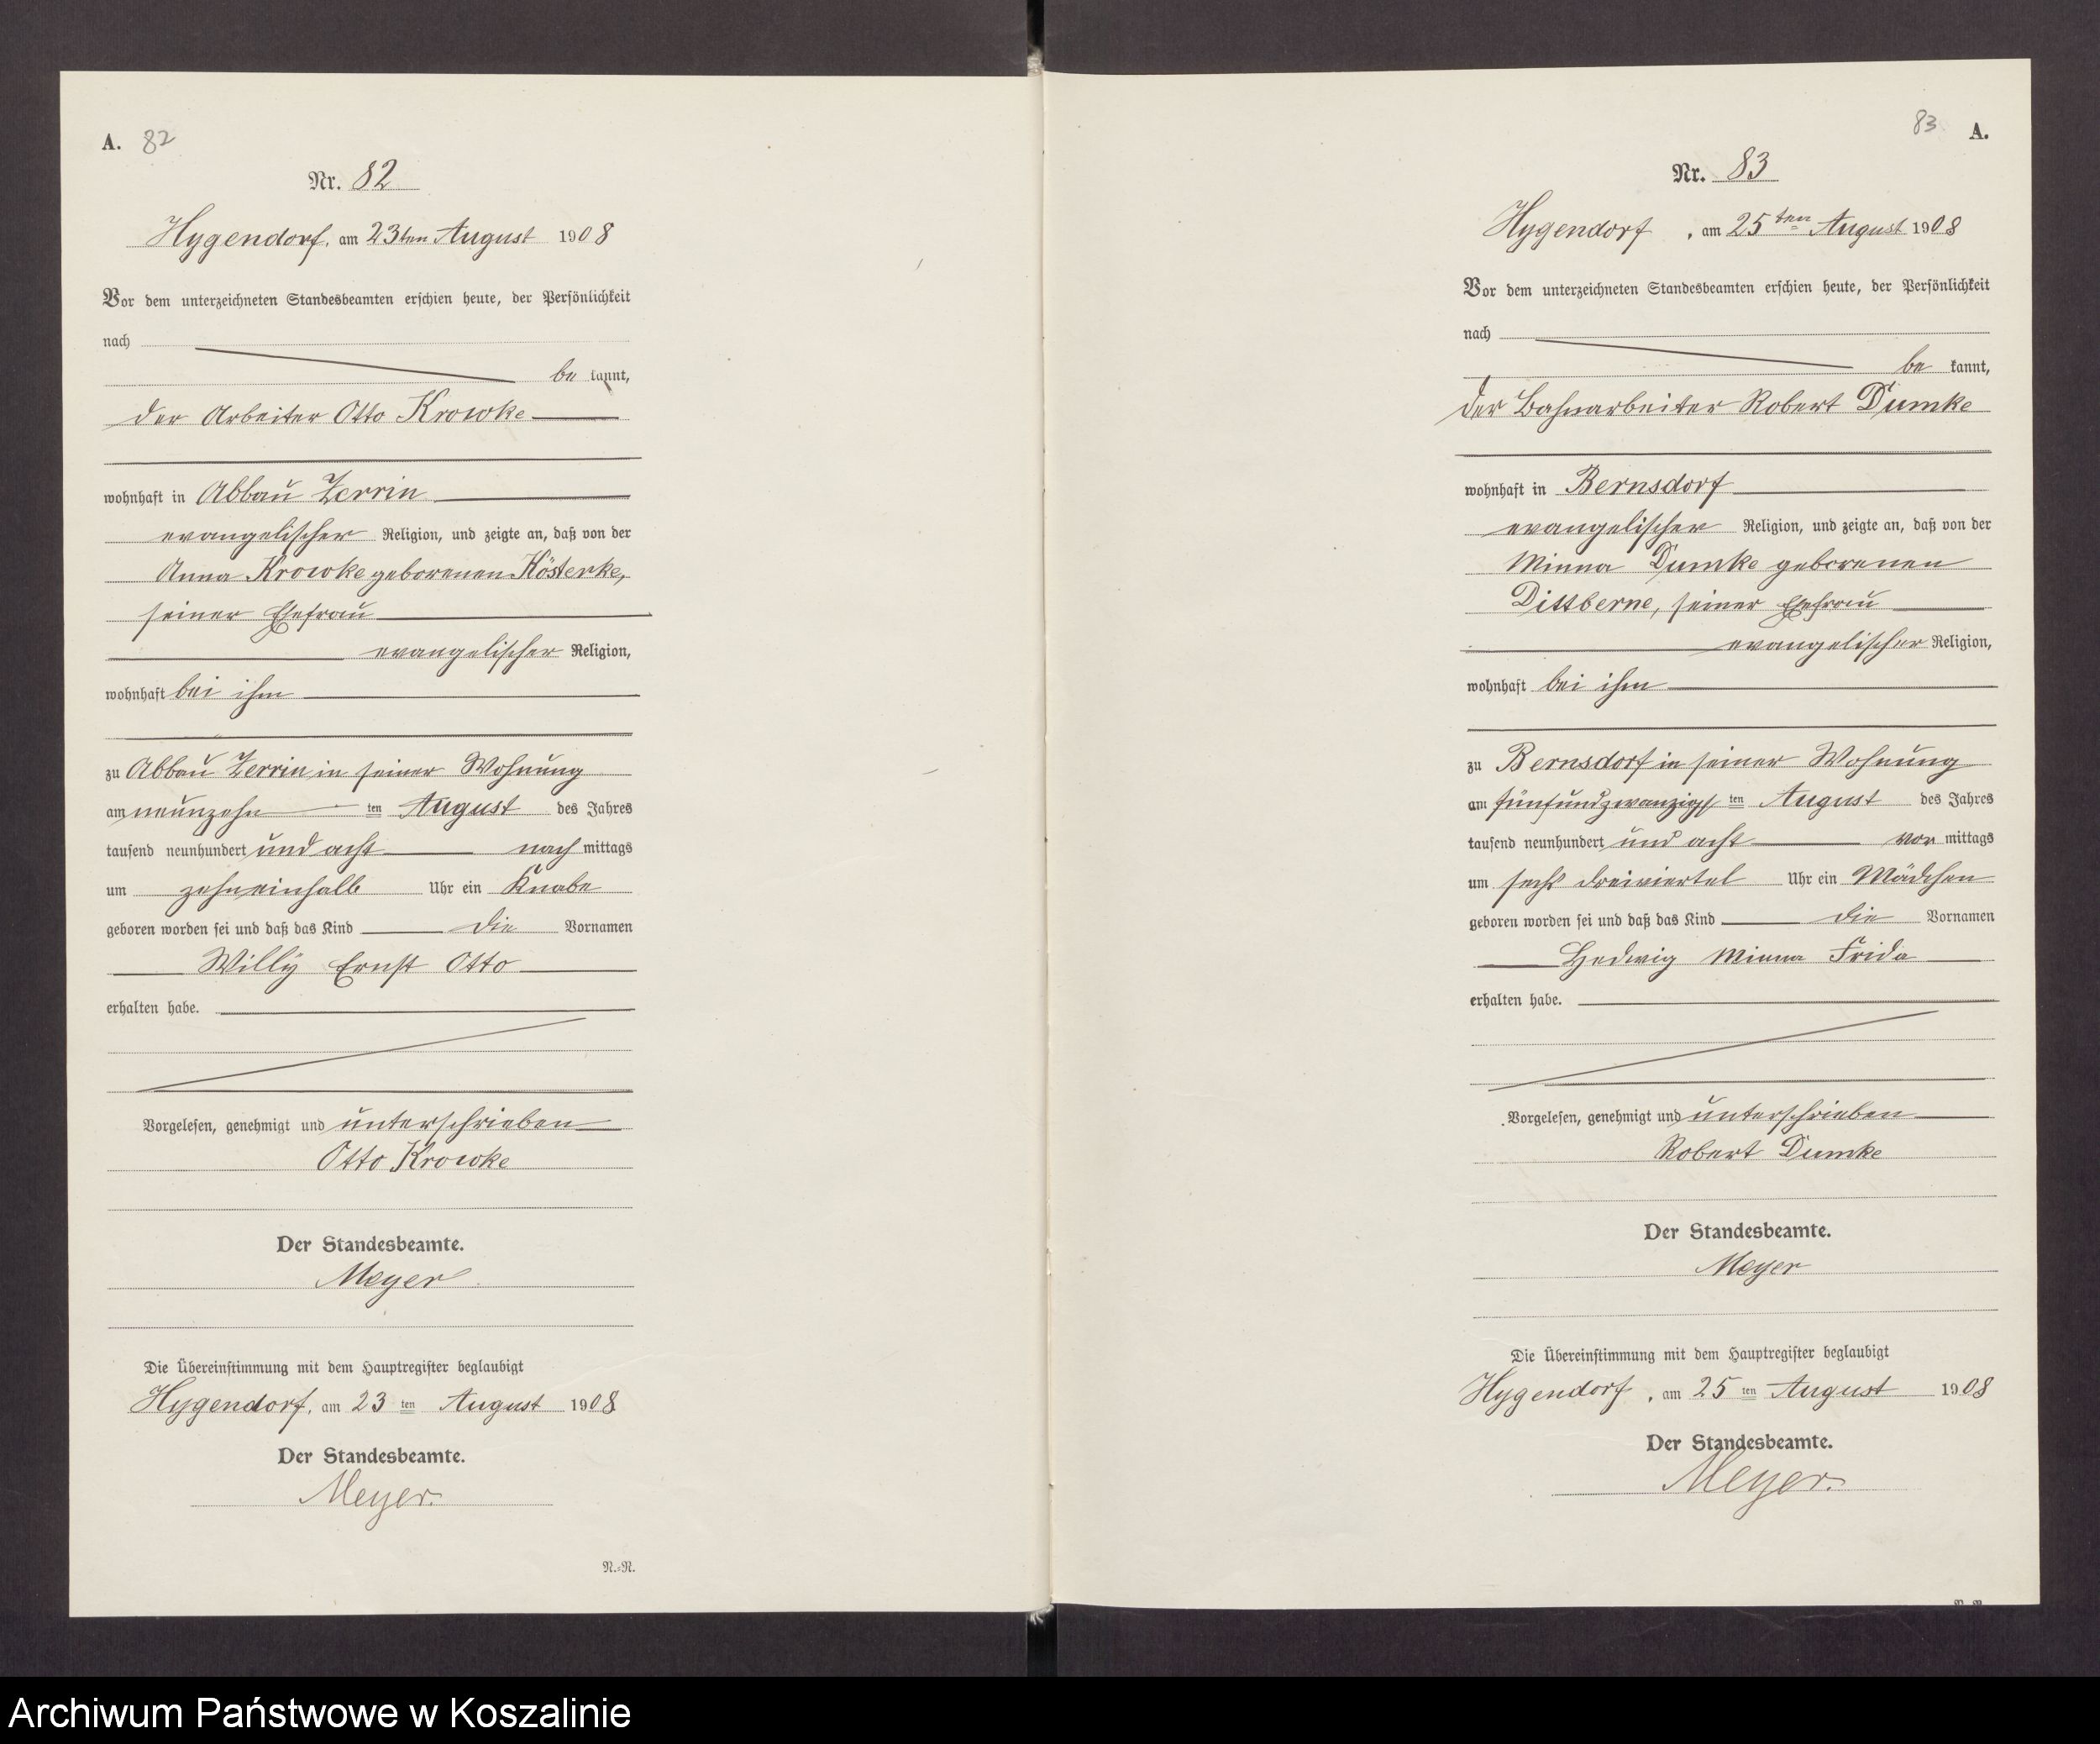 A. 82
Nr. 82
Hygendorf, am 23ten August 1908
Vor dem unterzeichneten Standesbeamten erschien heute, der Persönlichkeit
nach
be kannt,
der Arbeiter Otto Krowke
wohnhaft in Abbau Zerrin
evangelischer Religion, und zeigte an, daß von der
Anna Krowke geborenen Kösterke,
seiner Ehefrau
evangelischer Religion,
wohnhaft bei ihm
zu Abbau Zerrin in seiner Wohnung
am neunzehn ten August des Jahres
tausend neunhundert und acht nach mittags
um zehneinhalb Uhr ein Knabe
geboren worden sei und daß das Kind die Vornamen
Willy Ernst Otto
erhalten habe.
Vorgelesen, genehmigt und unterschrieben
Otto Krowke
Der Standesbeamte.
Meyer
Die Übereinstimmung mit dem Hauptregister beglaubigt
Hygendorf, am 23 ten August 1908
Der Standesbeamte.
Meyer.
N.=N.
83 A.
Nr. 83
Hygendorf, am 25ten August 1908
Vor dem unterzeichneten Standesbeamten erschien heute, der Persönlichkeit
nach
be kannt,
der Bahnarbeiter Robert Dumke
wohnhaft in Bernsdorf
evangelischer Religion, und zeigte an, daß von der
Minna Dumke geborenen
Dittberne, seiner Ehefrau
evangelischer Religion,
wohnhaft bei ihm
zu Bernsdorf in seiner Wohnung
am fünfundzwanzigs ten August des Jahres
tausend neunhundert und acht vor mittags
um sechs dreiviertel Uhr ein Mädchen
geboren worden sei und daß das Kind die Vornamen
Hedwig Minna Frida
erhalten habe.
Vorgelesen, genehmigt und unterschrieben
Robert Dumke
Der Standesbeamte.
Meyer
Die Übereinstimmung mit dem Hauptregister beglaubigt
Hygendorf, am 25 ten August 1908
Der Standesbeamte.
Meyer.
Archiwum Państwowe w Koszalinie